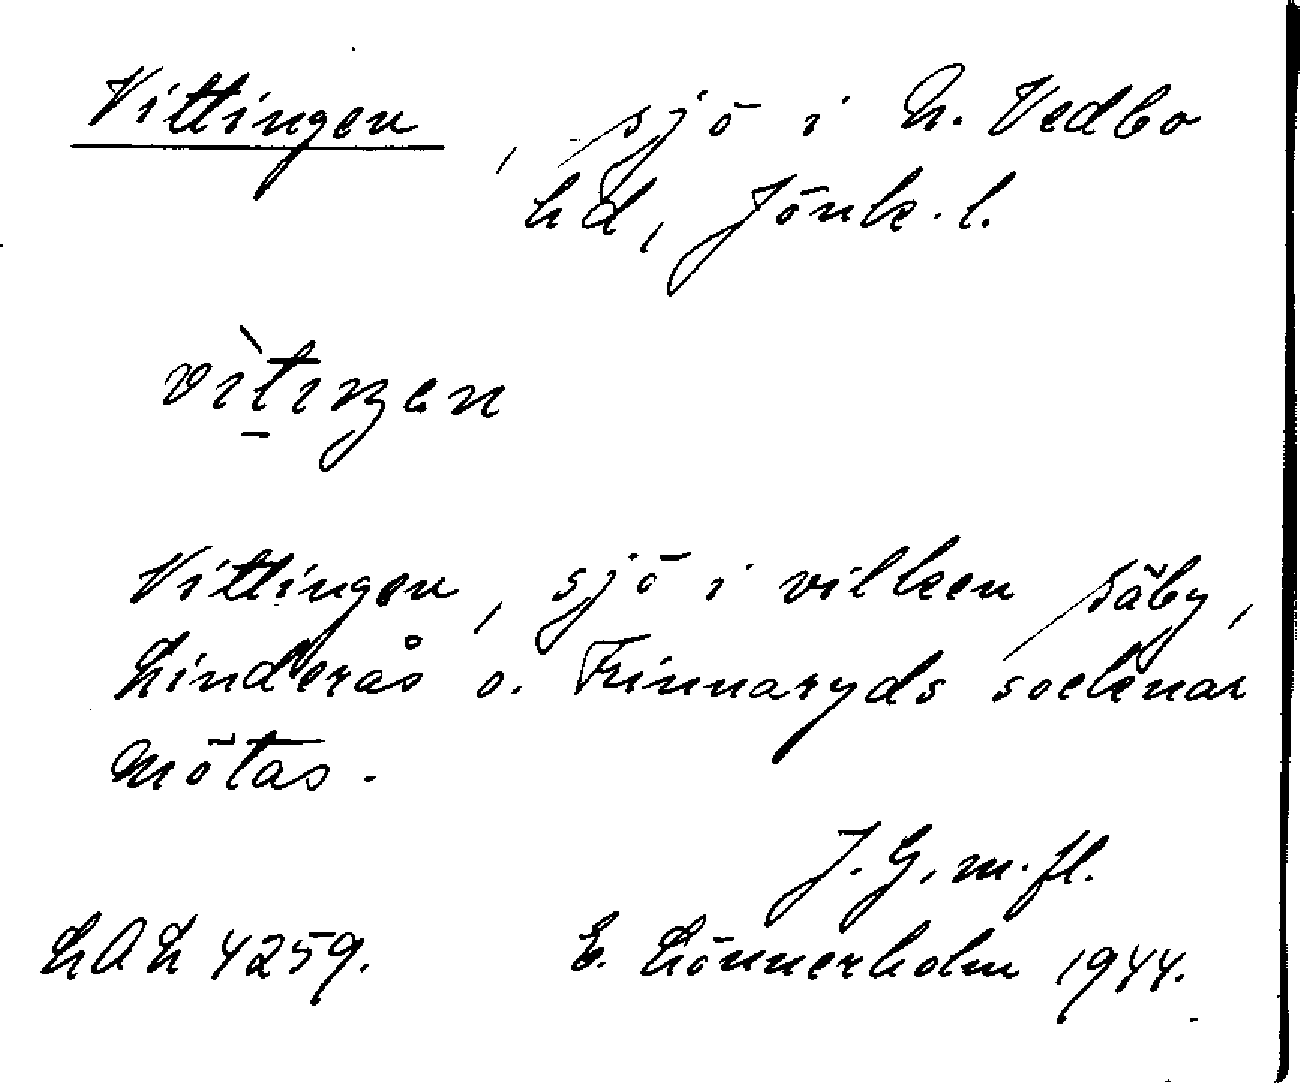 Vittingen, sjö i N. Vedbo
hd, Jönk. l.
vìt̠iŋen
Vittingen, sjö i vilken Säby,
Linderås o. Frinnaryds socknar
mötas.
J. G. m. fl.
LAL 4259. E. Lönnerholm 1944.